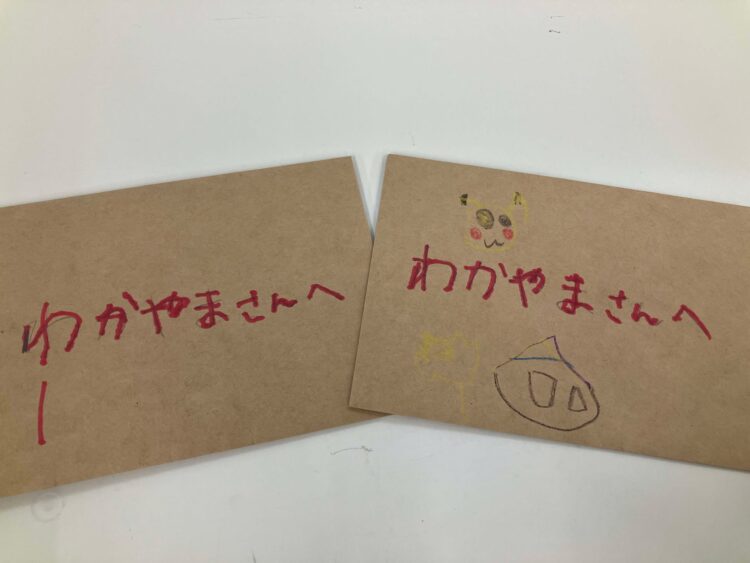 わかやまさんへ
わかやまさんへ